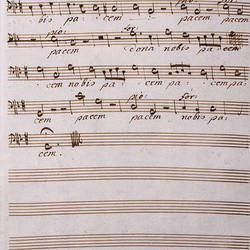 bis pa: cem pacem pacem
pio: for:
pacem dona nobis pa: cem
cem nobis pa: cem pa: cem
pio: for:
cem pacem pacem pacem pa:
cem.